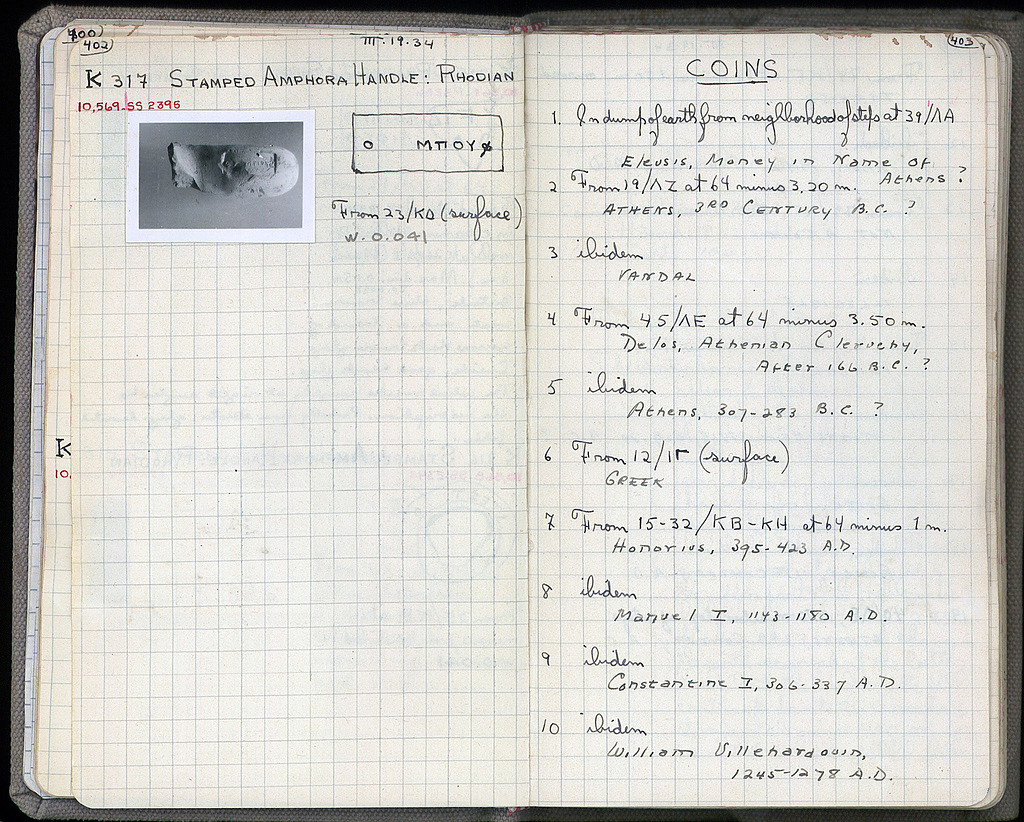 400)
402)
III.19.34
K 317 STAMPED AMPHORA HANDLE: RHODIAN
10,569 SS 2395
Ο ΜΠΟΥ
From 23/ΚΔ (surface)
W. 0.041
K
10,
403
COINS
1. In dump of earth from neighborhood of steps at 39/ΛΑ
Eleusis, Money in Name of
Athens ?
2 From 19/ΛΖ at 64 minus 3.20 m.
ATHENS, 3RD CENTURY B.C. ?
3 ibidem
VANDAL
4 From 45/ΛΕ at 64 minus 3.50 m.
Delos, Athenian Cleruchy,
After 166 B.C. ?
5 ibidem
Athens, 307-283 B.C. ?
6 From 12/ΙΓ (surface)
GREEK
7 From 15-32/ΚΒ-ΚΗ at 64 minus 1 m.
Honorius, 395-423 A.D.
8 ibidem
Manuel I, 1143-1180 A.D.
9 ibidem
Constantine I, 306-337 A.D.
10 ibidem
William Villehardouin,
1245-1278 A.D.